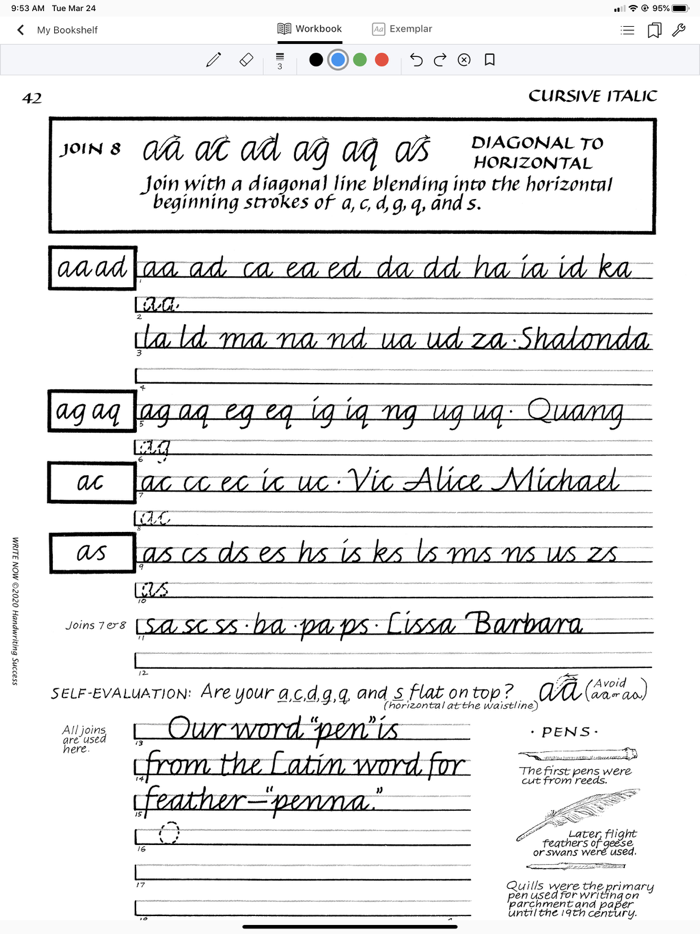 9:53 AM Tue Mar 24
95%
My Bookshelf
Workbook
Aa Exemplar
3
42
CURSIVE ITALIC
JOIN 8
aa ac ad ag aq as
DIAGONAL TO
HORIZONTAL
Join with a diagonal line blending into the horizontal
beginning strokes of a, c, d, g, q, and s.
aa ad
aa ad ca ea ed da dd ha ia id ka
1
aa
2
la ld ma na nd ua ud za · Shalonda
3
4
ag aq
ag aq eg eq ig iq ng ug uq · Quang
5
ag
6
ac
ac cc ec ic uc · Vic Alice Michael
7
ac
8
as
as cs ds es hs is ks ls ms ns us zs
9
as
10
Joins 7 or 8
sa sc ss · ba · pa ps · Lissa Barbara
11
12
WRITE NOW ©2020 Handwriting Success
SELF-EVALUATION: Are your a,c,d,g,q, and s flat on top?
(horizontal at the waistline)
aa
(Avoid
aa or aa)
All joins
are used
here.
Our word "pen" is
13
from the Latin word for
14
feather—"penna."
15
O
16
17
· PENS ·
The first pens were
cut from reeds.
Later, flight
feathers of geese
or swans were used.
Quills were the primary
pen used for writing on
parchment and paper
until the 19th century.